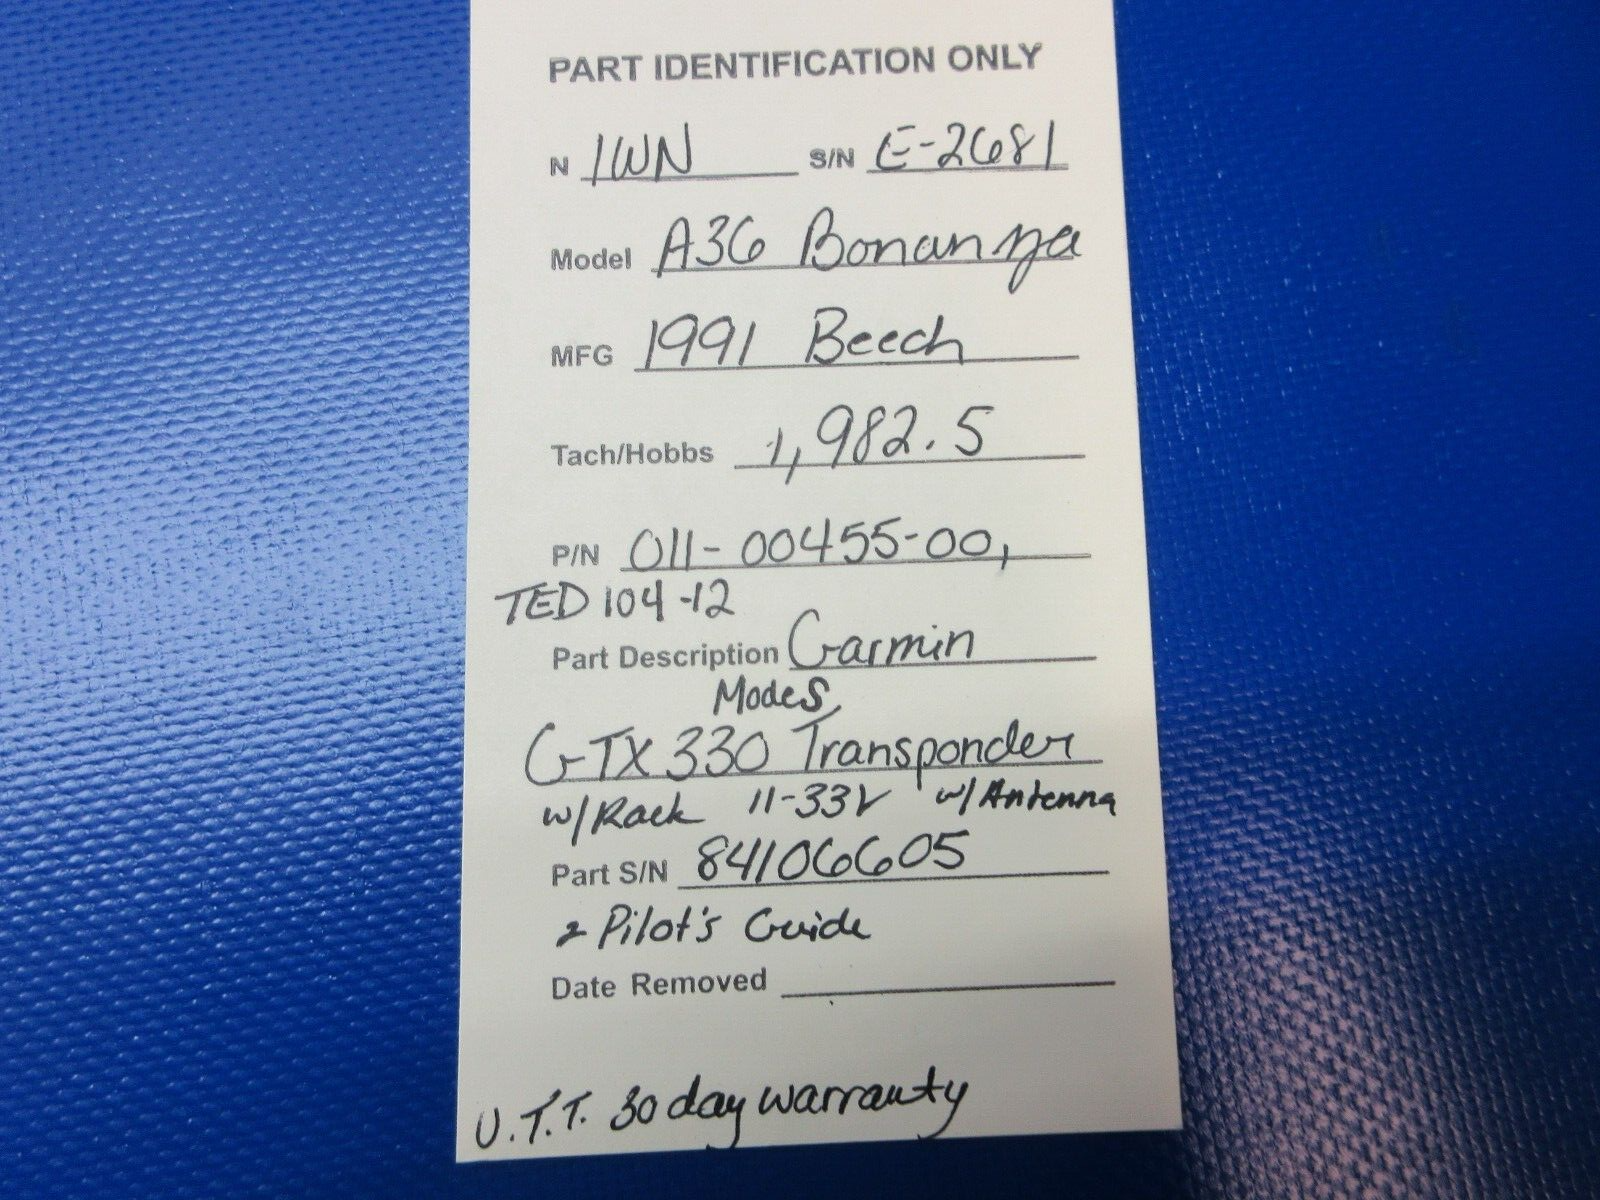 PART IDENTIFICATION ONLY
N 1WN S/N E-2681
Model A36 Bonanza
MFG 1991 Beech
Tach/Hobbs 1,982.5
P/N 011-00455-00,
TED 104-12
Part Description Garmin
Mode S
GTX 330 Transponder
w/Rack 11-33V w/Antenna
Part S/N 84106605
& Pilot's Guide
Date Removed
U.T.T. 30 day warranty